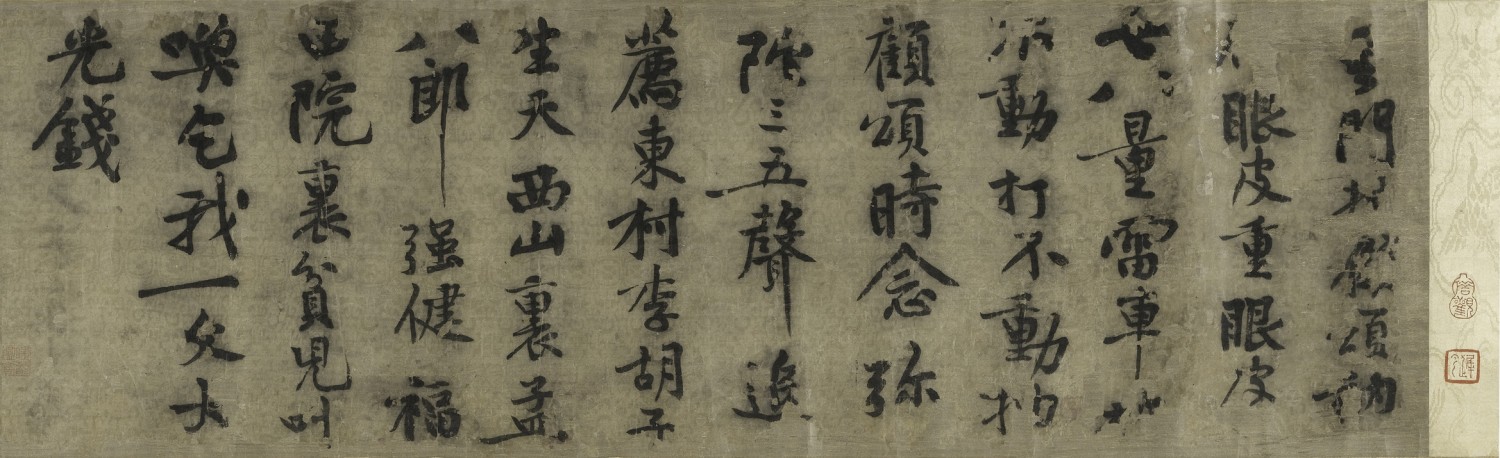 門頌衲
眼皮重眼皮
世八量雷車
動打不動
顧頌時念弥
陁三五聲追
薦東村李胡子
生天西山裏孟
八郎强健福
田院裏貧兒叫
喚乞我一文大
光錢